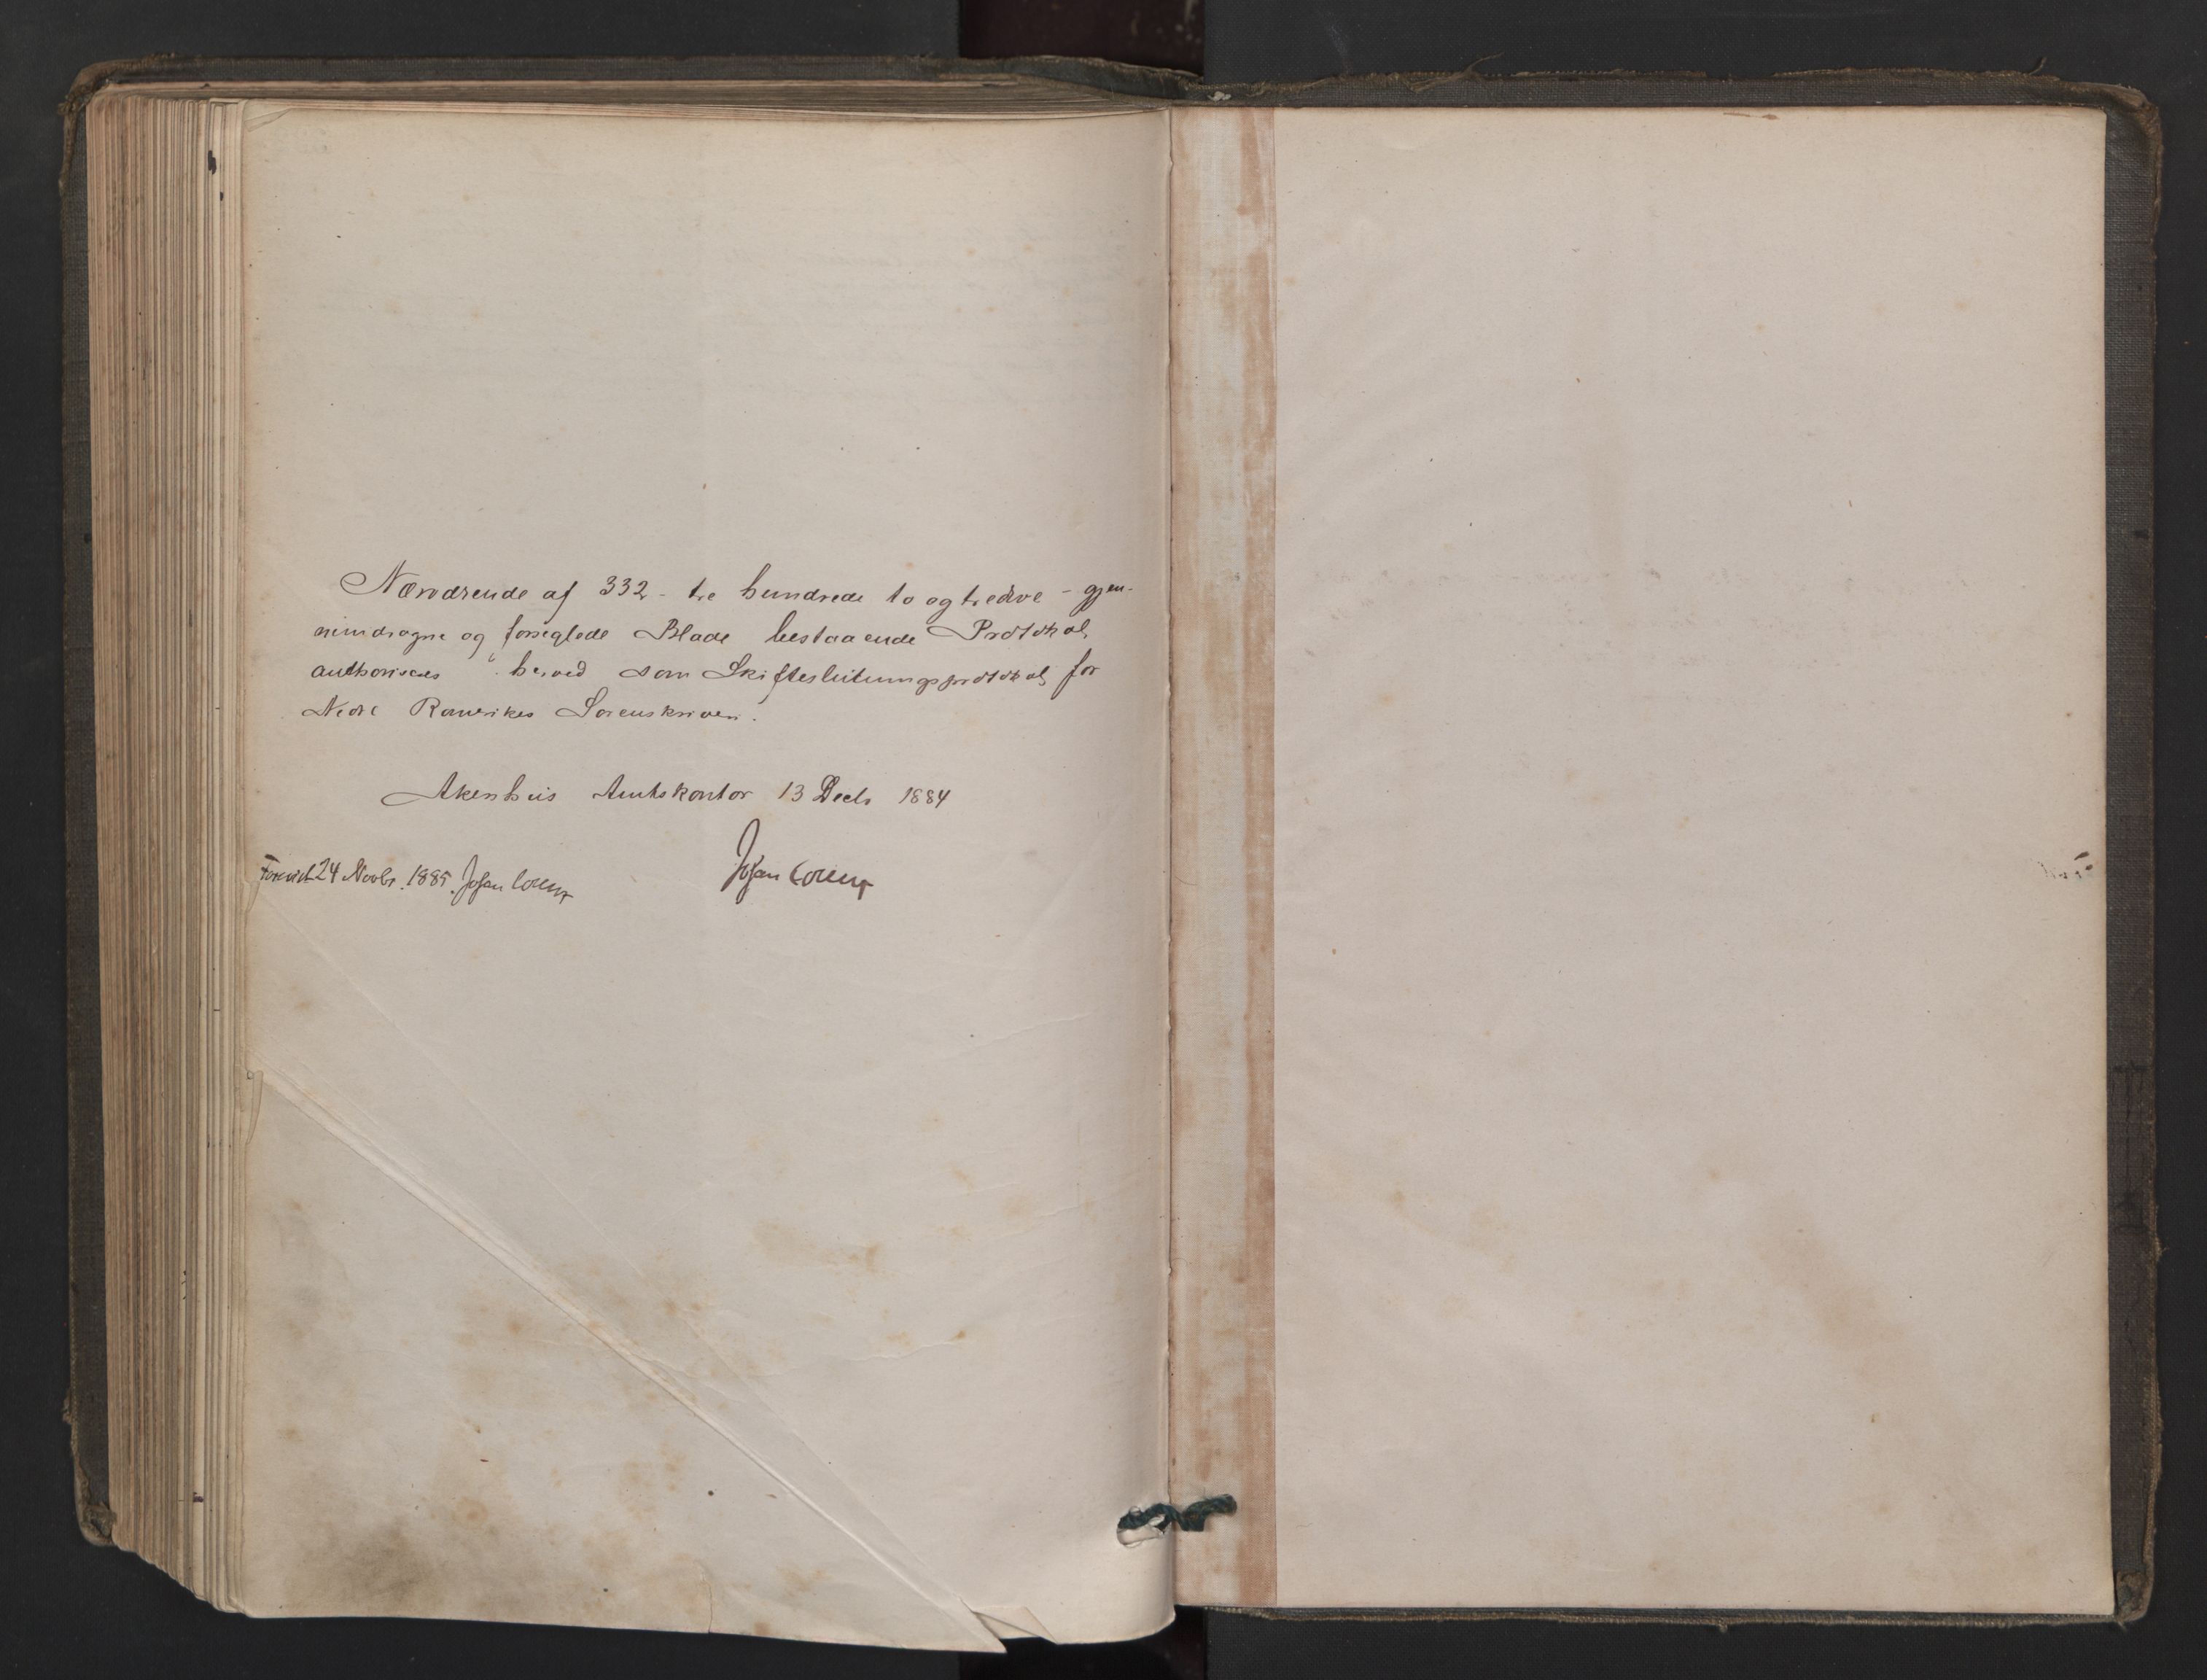 Nærværende af 332 - tre hundrede to og tredive - gjen-
nemdragne og forseglede Blade bestaaende Protokol,
authoriseres herved som Skiftesluttningsprotokol for
Nedre Romerikes Sorenskriveri.
Akershus Amtskontor 13 Decb 1884
Johan Collett
Forevist 24 Novbr. 1885. Johan Collett